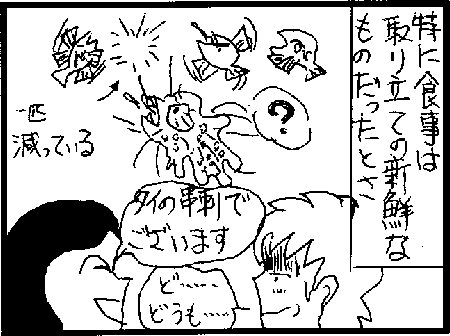 特に食事は
取り立ての新鮮な
ものだったとさ
一匹
減っている
?
タイの串刺しで
ございます
ど……
どうも……